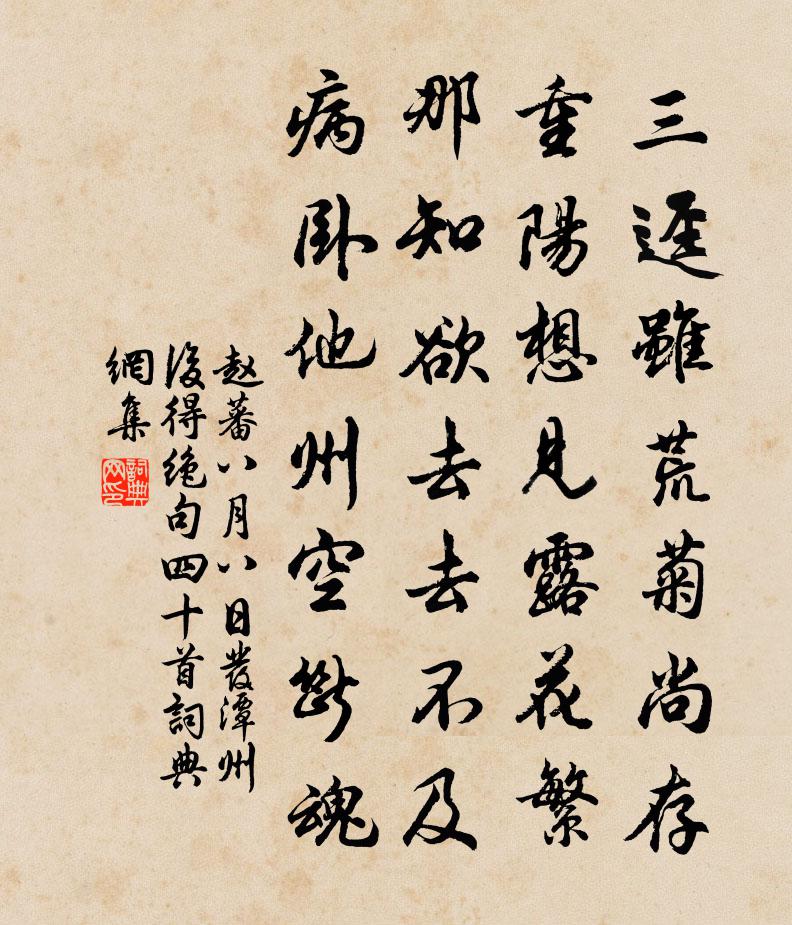 三逕雖荒菊尚存
重陽想見露花繁
那知欲去去不及
病卧他州空斷魂
赵蕃八月八日發潭州
後得絶句四十首詞典
網集
詞典网印